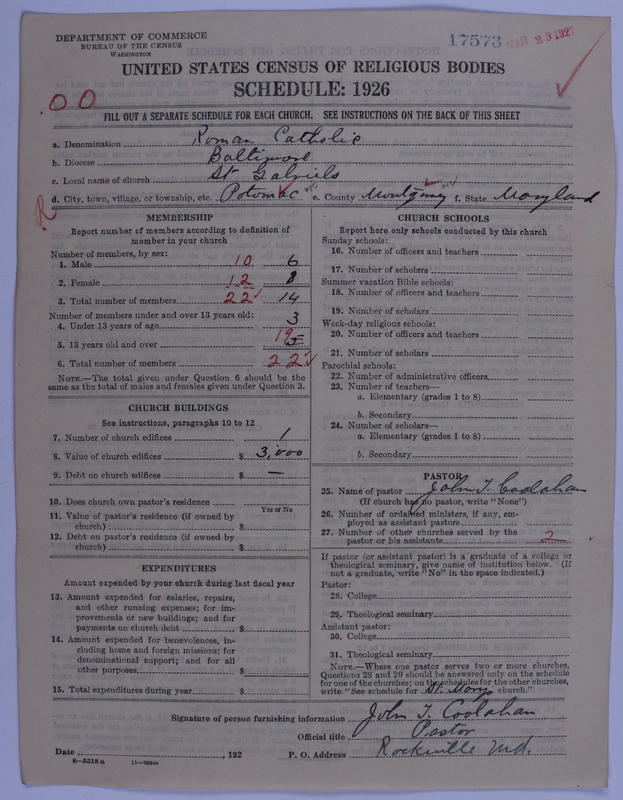 DEPARTMENT OF COMMERCE
BUREAU OF THE CENSUS
WASHINGTON
17573
MAR 23 1927
UNITED STATES CENSUS OF RELIGIOUS BODIES
SCHEDULE: 1926
00
FILL OUT A SEPARATE SCHEDULE FOR EACH CHURCH. SEE INSTRUCTIONS ON THE BACK OF THIS SHEET
a. Denomination Roman Catholic
b. Diocese Baltimore
c. Local name of church St Gabriels
d. City, town, village, or township, etc. Potomac e. County Montgmy f. State Maryland
R
MEMBERSHIP
Report number of members according to definition of
member in your church
Number of members, by sex:
1. Male 10 6
2. Female 12 8
3. Total number of members 22 14
Number of members under and over 13 years old:
4. Under 13 years of age 3
5. 13 years old and over 19
6. Total number of members 22
NOTE.—The total given under Question 6 should be the
same as the total of males and females given under Question 3.
CHURCH BUILDINGS
See instructions, paragraphs 10 to 12
7. Number of church edifices 1
8. Value of church edifices $ 3,000
9. Debt on church edifices $ —
10. Does church own pastor's residence
Yes or No
11. Value of pastor's residence (if owned by
church) $
12. Debt on pastor's residence (if owned by
church) $
EXPENDITURES
Amount expended by your church during last fiscal year
13. Amount expended for salaries, repairs,
and other running expenses; for im-
provements or new buildings; and for
payments on church debt $
14. Amount expended for benevolences, in-
cluding home and foreign missions; for
denominational support; and for all
other purposes $
15. Total expenditures during year $
CHURCH SCHOOLS
Report here only schools conducted by this church
Sunday schools:
16. Number of officers and teachers
17. Number of scholars
Summer vacation Bible schools:
18. Number of officers and teachers
19. Number of scholars
Week-day religious schools:
20. Number of officers and teachers
21. Number of scholars
Parochial schools:
22. Number of administrative officers
23. Number of teachers—
a. Elementary (grades 1 to 8)
b. Secondary
24. Number of scholars—
a. Elementary (grades 1 to 8)
b. Secondary
PASTOR
25. Name of pastor John T. Coolahan
(If church has no pastor, write "None")
26. Number of ordained ministers, if any, em-
ployed as assistant pastors
27. Number of other churches served by the
pastor or his assistants 2
If pastor (or assistant pastor) is a graduate of a college or
theological seminary, give name of institution below. (If
not a graduate, write "No" in the space indicated.)
Pastor:
28. College
29. Theological seminary
Assistant pastor:
30. College
31. Theological seminary
NOTE.—Where one pastor serves two or more churches,
Questions 28 and 29 should be answered only on the schedule
for one of the churches; on the schedules for the other churches,
write "See schedule for St. Marys church."
Signature of person furnishing information John T. Coolahan
Official title Pastor
Date , 192 P. O. Address Rockville Md.
8—5518 a